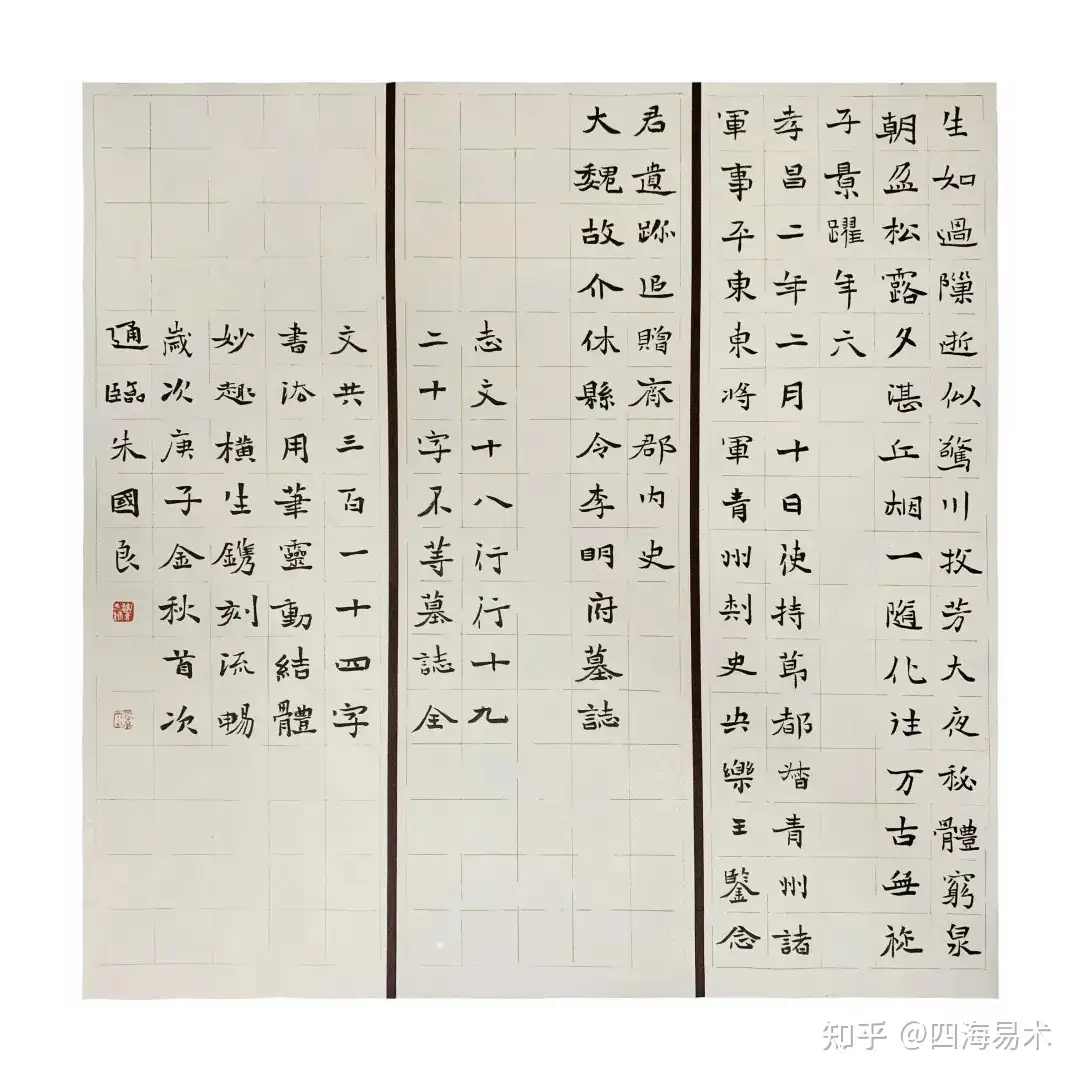 生如過隟逝似驚川收芳大夜秘體窮泉
朝盈松露夕湛丘烟一随化往万古無旋
子景躍年六
孝昌二年二月十日使持節都督青州諸
軍事平東東將軍青州刺史安樂王鑒念
君遺跡追贈齊郡内史
大魏故介休縣令李明府墓誌
志文十八行行十九
二十字不等墓誌全
文共三百一十四字
書法用筆靈動結體
妙趣橫生鐫刻流暢
歲次庚子金秋首次
通臨朱國良
知乎 @四海易术